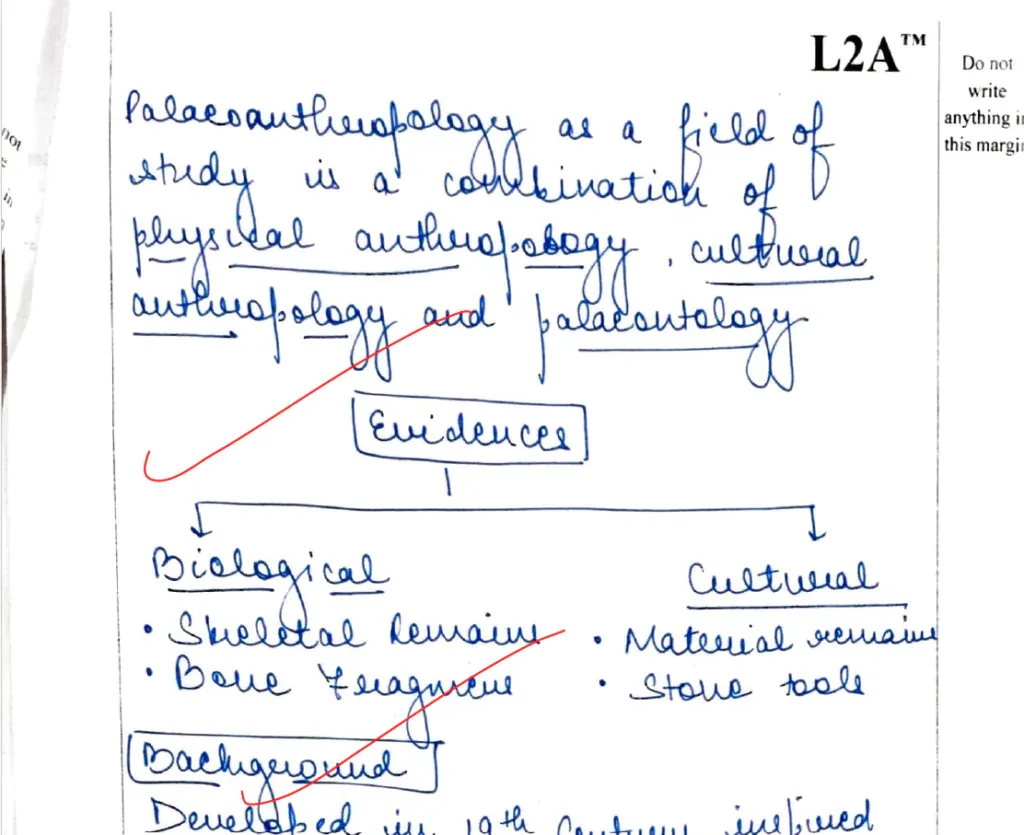 L2A™
Do not
write
anything in
this margin
Palaeoanthropology as a field of
study is a combination of
physical anthropology, cultural
anthropology and palaeontology
Evidences
Biological
• Skeletal Remains
• Bone Fragments
Cultural
• Material remains
• Stone tools
Background
Developed in 19th Century inspired